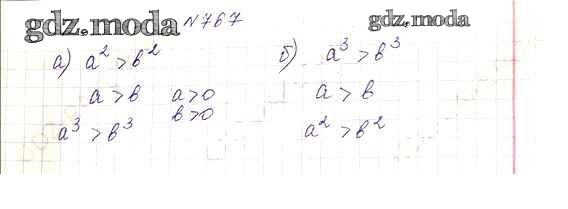 gdz.moda №767 gdz.moda
а) a² > b²
a > b a > 0
b > 0
a³ > b³
б) a³ > b³
a > b
a² > b²